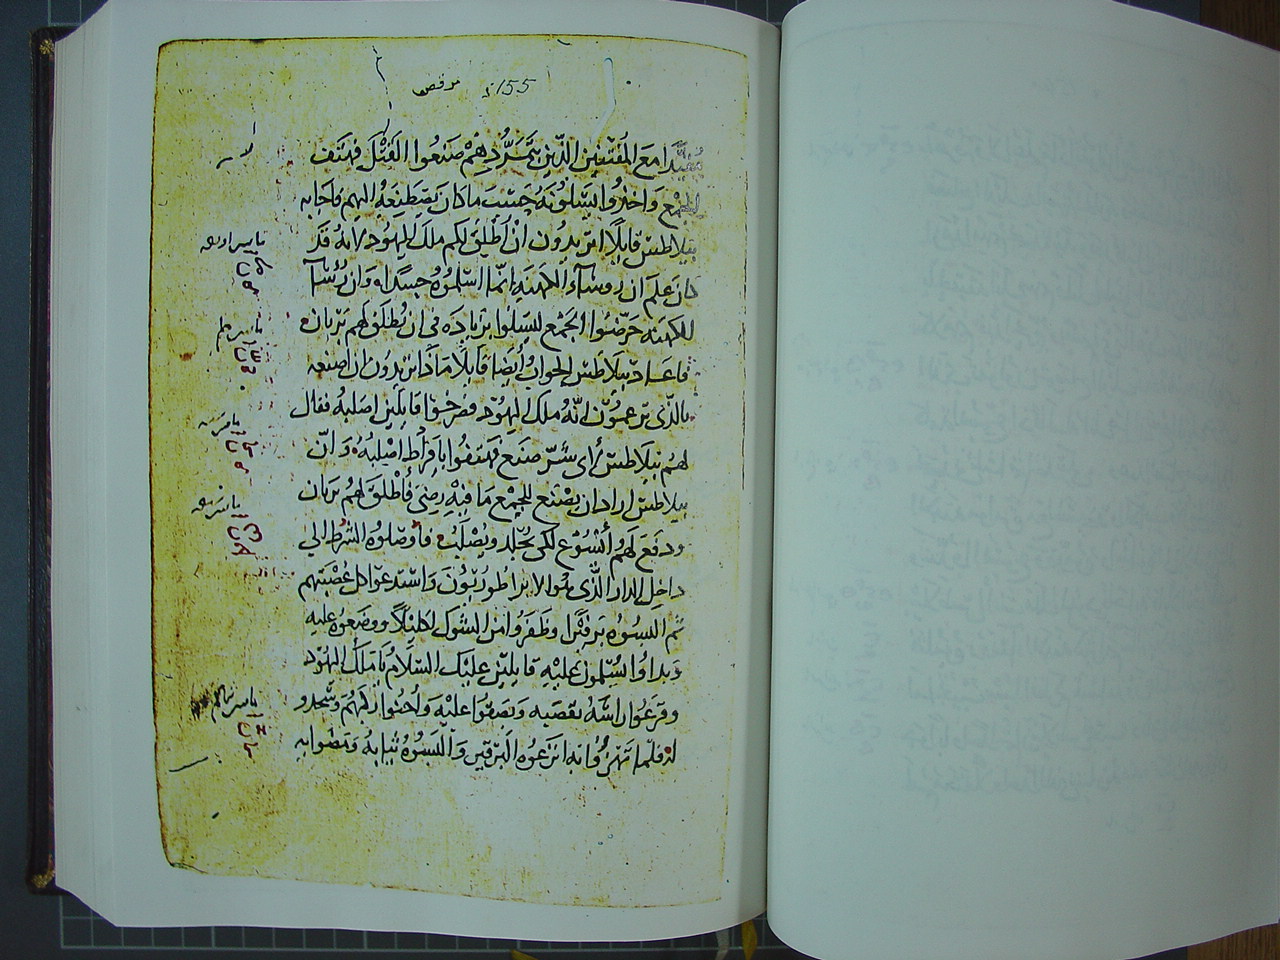 155 مرقص
مقيدا مع المفتنين الذين بتمردهم صنعوا القتل فهتف
الجمع واخذوا يسلونه حسب ما كان يصطنعه اليهم فاجابه
بيلاطس قايلا اتريدون ان اطلق لكم ملك اليهود لانه قد
كان علم ان روساء الكهنه انما اسلموه حسدا له وان روسآ
الكهنه حرضوا الجمع ليسلوا بزياده في ان يطلق لهم بربان
فاعاد بيلاطس الجواب أيضا قايلا ماذا تريدون ان اصنعه
بالذى تزعمون انه ملك اليهود فصرخوا قايلين اصلبه فقال
لهم بيلاطس أى شر صنع فهتفوا بافراط اصلبه وان
بيلاطس اراد ان يصنع للجمع ما فيه رضى فأطلق لهم بربان
ودفع لهم أيسوع لكى يجلد ويصلب فأوصلوه الشرط الي
داخل الدار الذى هو الابراطوريون واستدعوا كل عصبتهم
ثم البسوه برفيرا وظفروا من الشوك اكليلا ووضعوه عليه
وبداوا يسلمون عليه قايلين عليك السلام يا ملك اليهود
وقرعوا راسه بقصبه وبصقوا عليه وأحنوا ركبهم وسجدو
له فلما تهزوا به انزعوه البرفير والبسوه ثيابه ومضوا به